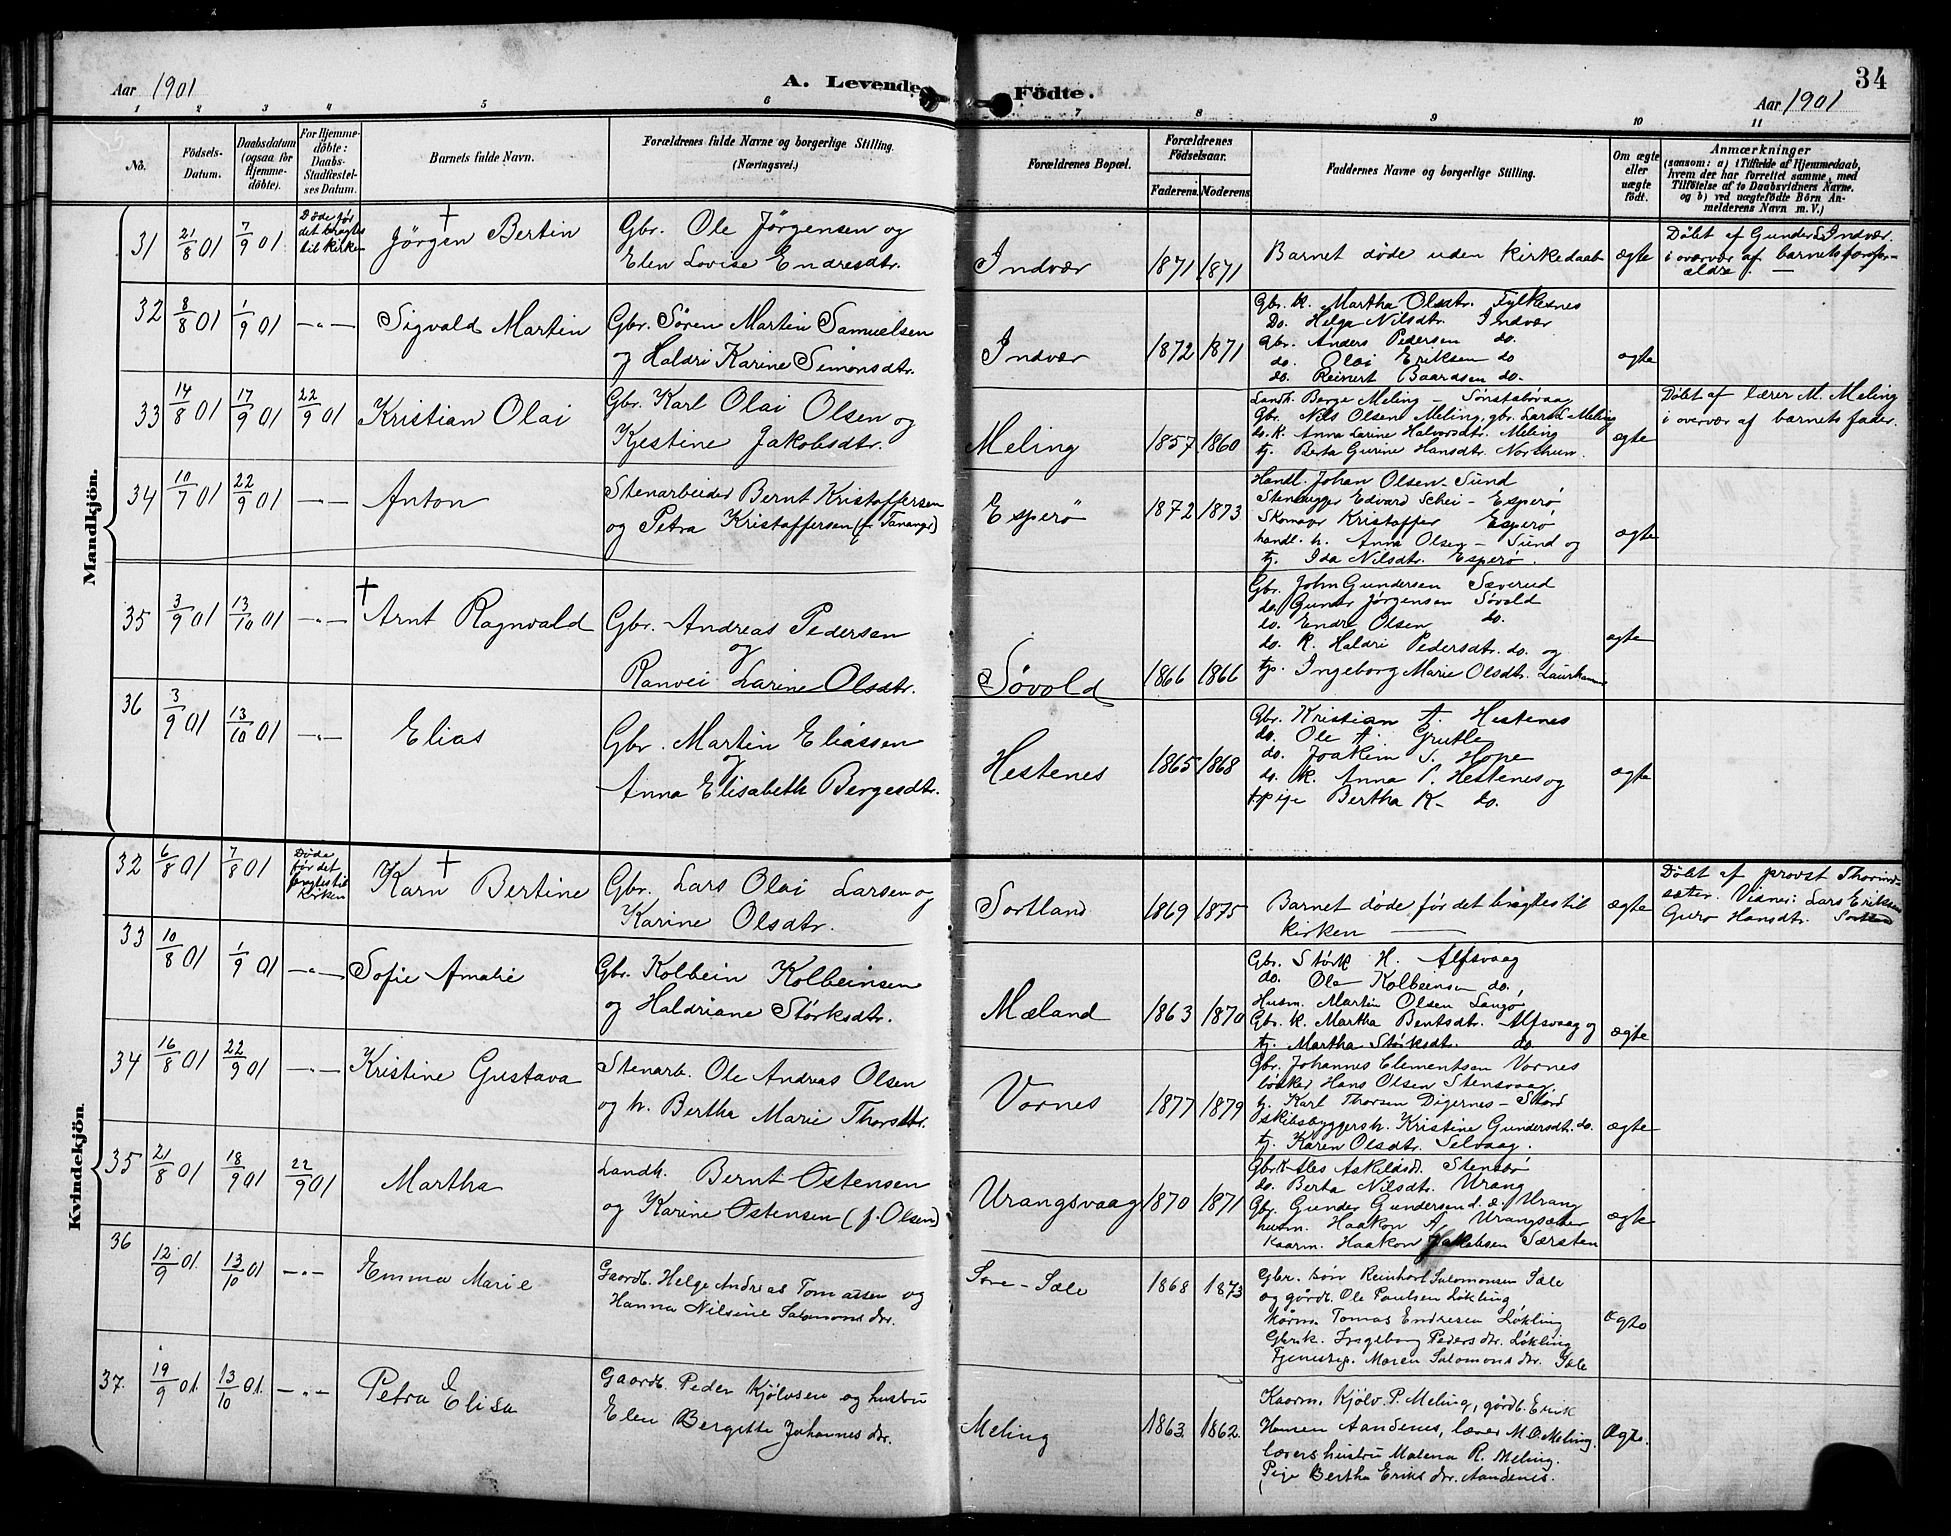 Aar 1901
A. Levende
Födte.
34
Aar 1901
1 2 3 4 5 6 7 8 9 10 11
No.
Födsels-
Datum.
Daabsdatum
(ogsaa för
Hjemme-
döbte).
For Hjemme-
döbte:
Daabs-
Stadfæstel-
ses Datum.
Barnets fulde Navn.
Forældrenes fulde Navne og borgerlige Stilling.
(Næringsvei.)
Forældrenes Bopæl.
Forældrenes
Födselsaar.
Faderens. Moderens.
Faddernes Navne og borgerlige Stilling.
Om ægte
eller
uægte
födt.
Anmærkninger
(saasom: a) i Tilfælde af Hjemmedaab,
hvem der har forrettet samme, med
Tilföielse af to Daabsvidners Navne.
og b) ved uægtefödte Börn An-
melderens Navn m. V.)
Mandkjön.
31 21/8 01 7/9 01
Døde før
det bragtes
til kirken
†
Jørgen Bertin
Gbr. Ole Jörgensen og
Elen Lovise Endresdtr.
Indvær 1871 1871
Barnet døde uden kirkedaab
ægte
Døbt af Gunder Indvær.
i overvær af barnets
ældre. —
32 8/8 01 1/9 01 — " —
Sigvald Martin
Gbr. Søren Martin Samuelsen
og Haldri Karine Simonsdtr.
Indvær 1872 1871
Gbr. k. Martha Olsdtr. Fylkesnes
Do. Helga Nilsdtr. Indvær
Gbr. Anders Pedersen do.
do. Olai Eriksen do
do. Reinert Baardsen do.
ægte
33 14/8 01 17/9 01 22/9 01
Kristian Olai
Gbr. Karl Olai Olsen og
Kjestine Jakobsdtr.
Meling 1857 1860
Landh. Børge Meling –
Gbr. Nils Olsen Meling, gbr. Lars L. Meling
do. k. Anna Larine Halvorsdtr. Meling
tj. Berta Gurine Hansdtr. Nordhun.
ægte
Døbt af lærer M. Meling
i overvær af barnets fader.
34 10/7 01 22/9 01 — " —
Anton
Stenarbeider Bernt Kristaffersen
og Petra Kristaffersen (fr Tananger)
Esperø 1872 1873
Handl. Johan Olsen – Sund
Stenhugger Edvard Schei – Esperø
Skomager Kristaffer Esperø
handl. h. Anna Olsen – Sund og
tj. Ida Nilsdtr. Esperø.
ægte
35 3/9 01 13/10 01 — " —
†
Arnt Ragnvald
Gbr. Andreas Pedersen
og
Ranvei Larine Olsdtr.
Søvold 1866 1866
Gbr. John Gundersen Sæverud
do. Gunder Jørgensen Søvold
do. Endre Olsen do.
do. K. Haldri Pedersdtr. do. og
tjp. Ingeborg Marie Olsdtr.
ægte
36 3/9 01 13/10 01 — " —
Elias
Gbr. Martin Eliassen
og
Anna Elisabeth Bergesdtr.
Hestenes 1865 1868
Gbr. Kristian A. Hestenes
do. Ole A. Grutle
do. Joakim S. Hope
do. k. Anna P. Hestenes og
tpige Bertha K– do.
ægte
Kvindekjön.
32 6/8 01 7/8 01
Døde
før det
bragtes til
kirken
†
Karn Bertine
Gbr. Lars Olai Larsen og
Karine Olsdtr.
Sortland 1869 1875
Barnet døde før det bragtes til
kirken —
ægte
Døbt af provst Thorind-
sæter. Vidner: Lars Eriksen
Guro Hansdtr. Sortland
33 10/8 01 1/9 01 — " —
Sofie Amalie
Gbr. Kolbein Kolbeinsen
og Haldriane Størksdtr.
Mæland 1863 1870
Gbr. Størk H. Alfsvaag
do. Ole Kolbeinsen do.
Husm. Martin Olsen Langø
Gbr. k. Martha Bentsdtr. Alfsvaag og
tj. Martha Størksdtr. do
ægte
34 16/8 01 22/9 01 — " —
Kristine Gustava
Stenarb. Ole Andreas Olsen
og h. Bertha Marie Thorsdtr.
Vornes 1877 1879
Gbr. Johannes Clementsen Vornes
bøcker Hans Olsen Stensvaag,
tj. Karl Thorsen Digernes – Stord
skibsbyggersh. Kristine Gundersdtr. do.
tj. Karen Olsdtr. Selvaag.
ægte
35 21/8 01 18/9 01 22/9 01
Martha
Landh. Bernt Østensen
og Karine Østensen (f. Olsen)
Urangsvaag 1870 1871
Gbr. k. Ales Askildsdtr.
do. Berta Nilsdtr. Urang
Gbr. Gunder Gundersen d. æ. Urang
husm. Haakon A. Urangsæter
Kaarm. Haakon Jakobsen Særsten
ægte
36 12/9 01. 13/10 01 — " —
Emma Marie
Gaardb. Helge Andreas Tomassen og
Hanna Nilsine Salomons dtr.
Søre – Sæle 1868 1873
Gbr. søn Reinhart Salomonsen Sæle
og gårdb. Ole Paulsen Løkling
Kårm. Tomas Endresen Løkling
Gbr.k. Ingeborg Peders dtr. Løkling
Tjenstep. Maren Salomons dtr. Sæle
Ægte
37. 19/9 01. 13/10 01. — " —
Petra Elisa
Gaardb. Peder Kjölvsen og hustru
Elen Bergitte Johannes dtr.
Meling 1863. 1862.
Kaarm. Kjölv P. Meling, gårdb. Erik
Hansen Aandenes, lærer M.O. Meling.
lærers hustru Malena R. Meling.
Pige Bertha Eriks dtr. Aandenes.
Ægte.